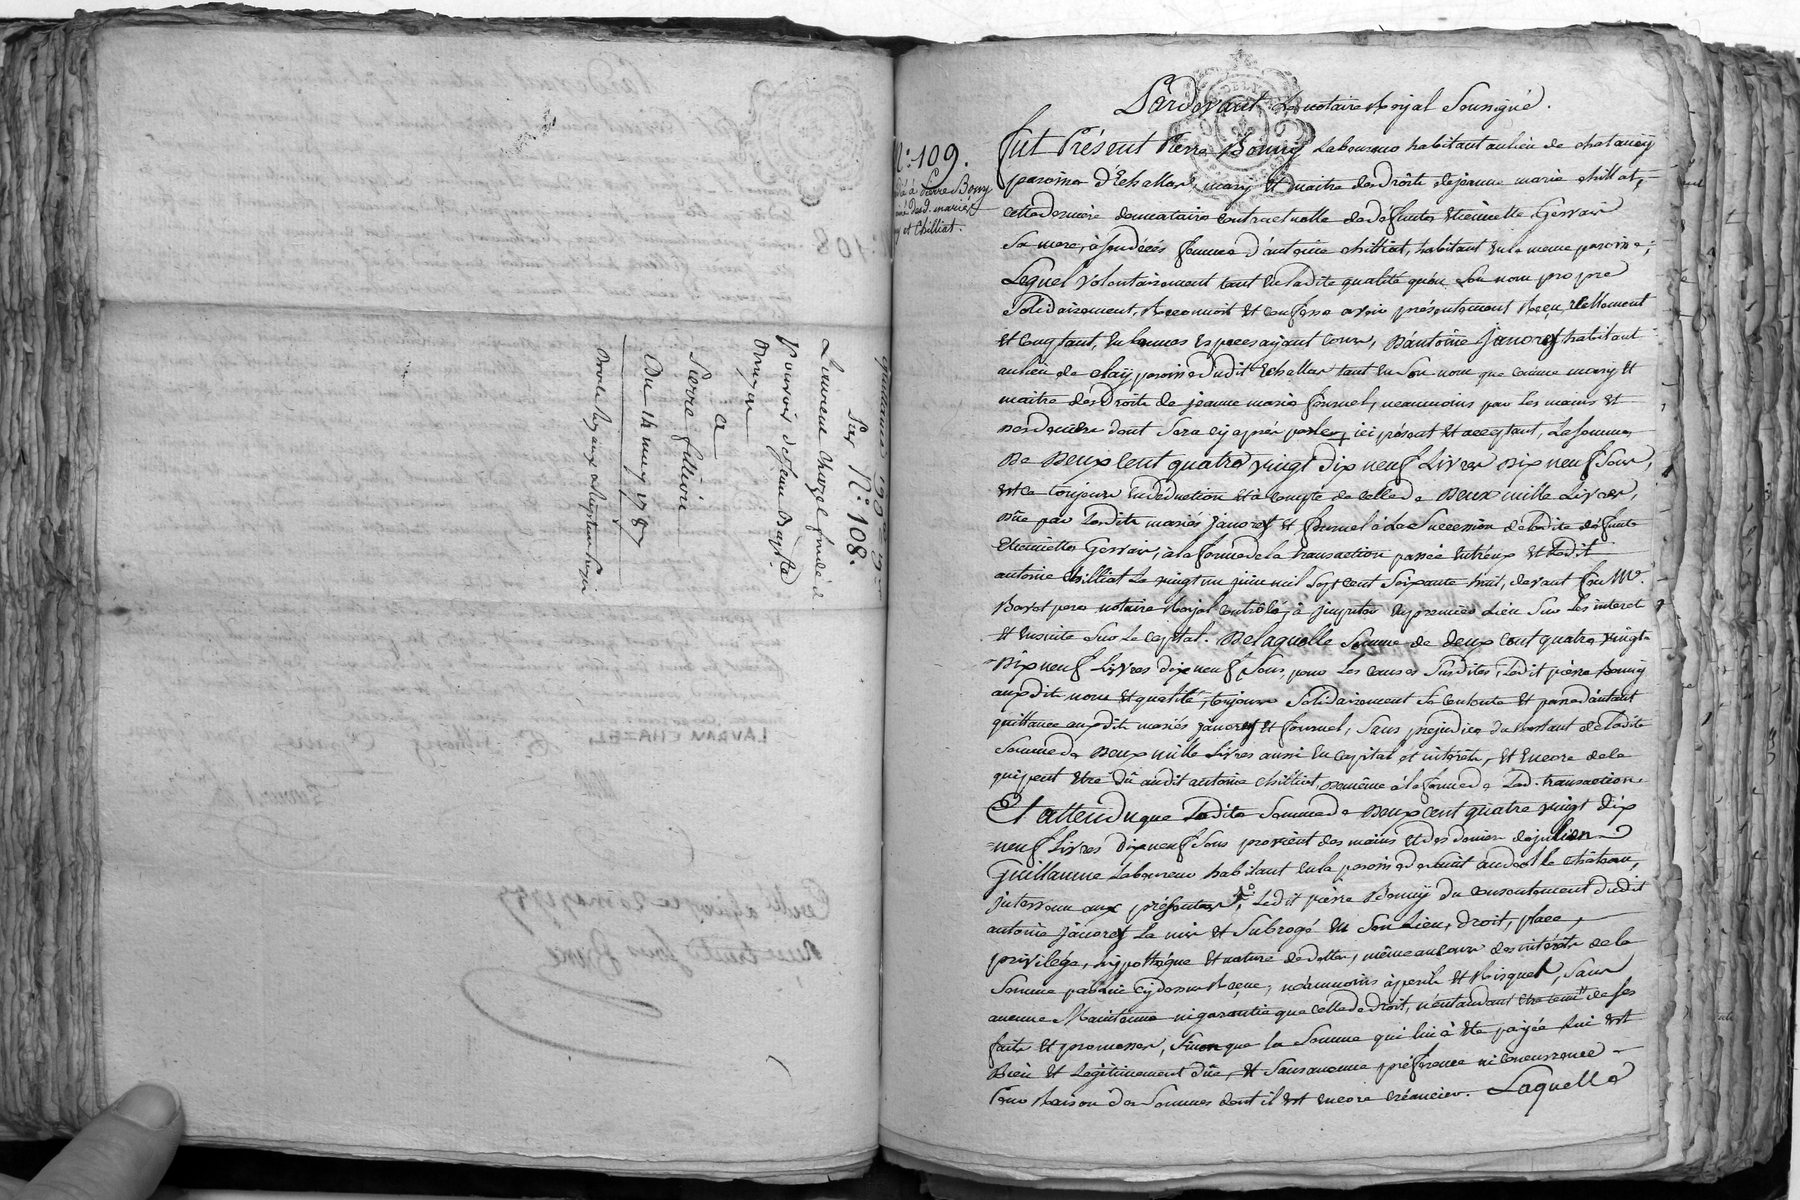 quittance 299 # 19 s.
Sur N.° 108.
Laurent Chazel fondé d
pouvoir de Jean Baptiste
a
Pierre fillion
Du 14 may 1787
N.° 109.
à Pierre Bonny
mariés
et Chilliat.
Pardevant Le notaire Royal Soussigné.
fut Présent Pierre Bonny Laboureur habitant au lieu de chatanay
paroisse d'Echallas, mary Et maitre des droits de jeanne marie chillat,
cette derniere donnataire contractuelle de deffunte Etiennette Gervais
Sa mere, à son décès femme d'antoine chilliat, habitant en la meme paroisse,
Lequel volontairement tant en ladite qualité qu'en Son nom propre
Solidairement, Reconnoit Et confesse avoir présentement Reçu réellement
Et comptant, En bonnes Especes ayant cour, D'antoine janoray habitant
au lieu de clay paroisse dudit Echallas tant En Son nom que comme mary Et
maitre des Droits de jeanne marie fournel, neanmoins par les mains Et
des deniers dont Sera cy après parlé, ici présent Et acceptant, La Somme
De Deux Cent quatre vingt Dix neuf Livres Dix neuf Sous,
Et ce toujours En déduction Et à compte de celle de Deux mille Livres,
Dûe par Lesdits mariés janoray Et fournel à La Succession de Ladite deffunte
Etiennette Gervais, à la forme de la transaction passée Entr'eux Et Ledit
antoine Chilliat Le vingt un juin mil Sept cent Soixante huit, devant feu M.e
pere notaire Royal controlée, à jmputer En premier Lieu Sur Les interets
Et Ensuite Sur Le capital. De laquelle Somme de deux cent quatre vingt
Dix neuf Livres dix neuf Sous, pour Les causes Susdites, Ledit pierre Bonny
auxdits noms Et qualité, toujours Solidairement Se contente Et passe d'autant
quittance auxdits mariés janoray Et fournel, Sans préjudice du Restant de Ladite
Somme de Deux mille Livres aussi En capital et intérêts, Et Encore de ce
qui peut Etre dû audit antoine Chilliat, De même à la forme de Lad. transaction.
Et attendu que Ladite Somme de Deux Cent quatre vingt dix
neuf Livres dix neuf Sous provient des mains Et des deniers de julien
Guillaume Laboureur habitant En la paroisse de Saint andeol le chateau,
jntervenu aux présentes, Ledit pierre Bonny du consentement dudit
antoine janoray La mis Et Subrogé En Son Lieu, droit, place,
privilége, hypotheque Et nature de dette, même au cour des intérêts de la
Somme par lui cy dessus Reçue, néanmoins à perils Et Risques, Sans
aucune Maintenue ni garantie que celle de droit, n'entendant être tenu de ses
faits Et promesses, Sinon que la Somme qui lui à Eté payée lui est
Bien Et Légitimement dûe, Et Sans aucune préférence ni concurrence
Pour Raison des Sommes dont il Est encore créancier. Laquelle